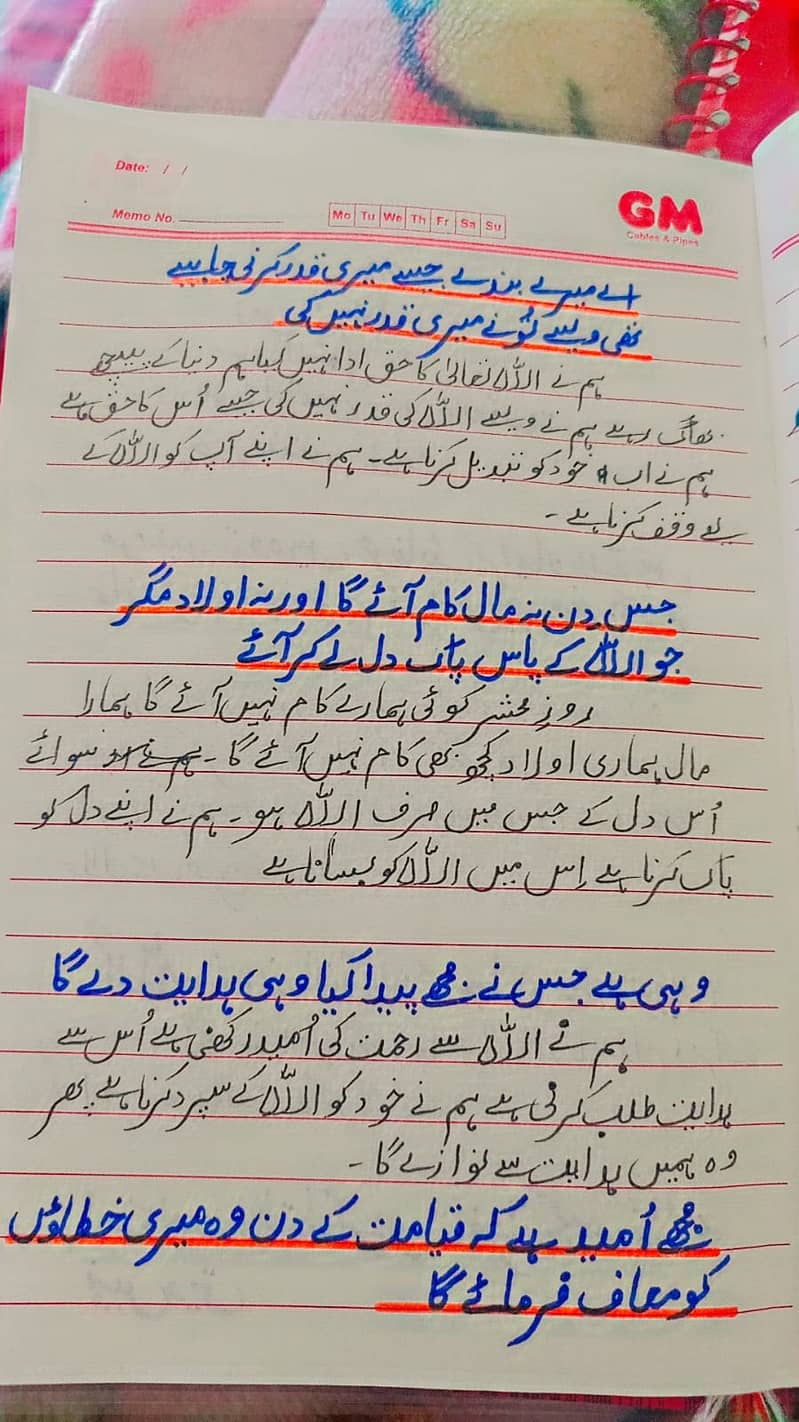 Date: / /
Memo No.
Mo Tu We Th Fr Sa Su
GM
Cables & Pipes
اے میرے بندے جیسے میری قدر کرنی چاہیے
تھی ویسے تُو نے میری قدر نہیں کی
ہم نے اللہ تعالیٰ کا حق ادا نہیں کیا ہم دنیا کے پیچھے
بھاگ رہے ہم نے ویسے اللہ کی قدر نہیں کی جیسے اُس کا حق ہے
ہم نے اب خود کو تبدیل کرنا ہے۔ ہم نے اپنے آپ کو اللہ کے
لیے وقف کرنا ہے۔
جس دن نہ مال کام آئے گا اور نہ اولاد مگر
جو اللہ کے پاس پاک دل لے کر آئے
روزِ محشر کوئی ہمارے کام نہیں آئے گا ہمارا
مال ہماری اولاد کچھ بھی کام نہیں آئے گا۔ ہم نے سوائے
اُس دل کے جس میں صرف اللہ ہو۔ ہم نے اپنے دل کو
پاک کرنا ہے اِس میں اللہ کو بسانا ہے
وہی ہے جس نے مجھے پیدا کیا وہی ہدایت دے گا
ہم نے اللہ سے رحمت کی اُمید رکھنی ہے اُس سے
ہدایت طلب کرنی ہے ہم نے خود کو اللہ کے سپرد کرنا ہے پھر
وہ ہمیں ہدایت سے نوازے گا۔
مجھے اُمید ہے کہ قیامت کے دن وہ میری خطاؤں
کو معاف فرمائے گا